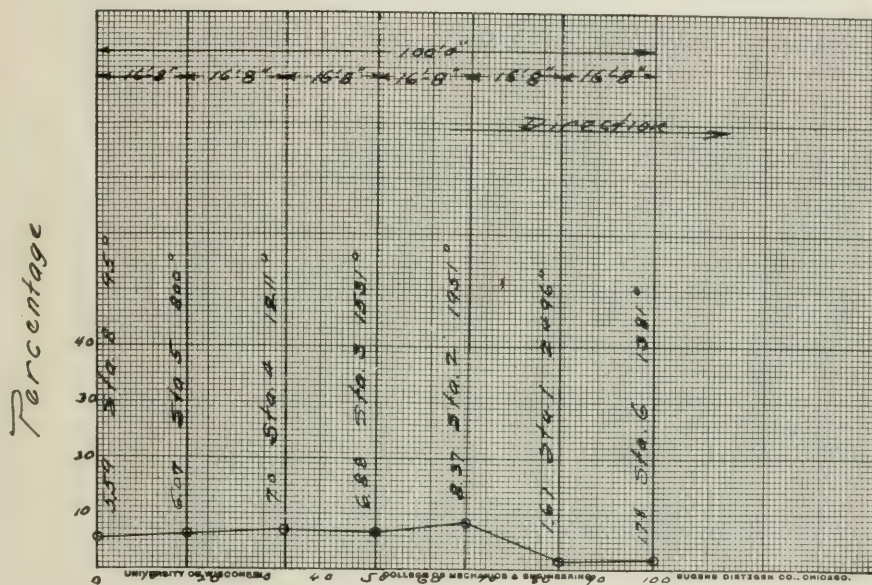 100'0"
16'-8" 16'-8" 16'-8" 16'-8" 16'-8" 16'-8"
Direction
Percentage
40
30
20
10
5.54 Sta. 8 95°
6.07 Sta. 5 800°
7.0 Sta. 4 1211°
6.88 Sta. 3 1531°
8.37 Sta. 2 1951°
1.61 Sta. 1 2496°
1.75 Sta. 6 1381°
0 20 40 50 60 70 80 90 100
UNIVERSITY OF WISCONSIN COLLEGE OF MECHANICS & ENGINEERING EUGENE DIETZGEN CO., CHICAGO.